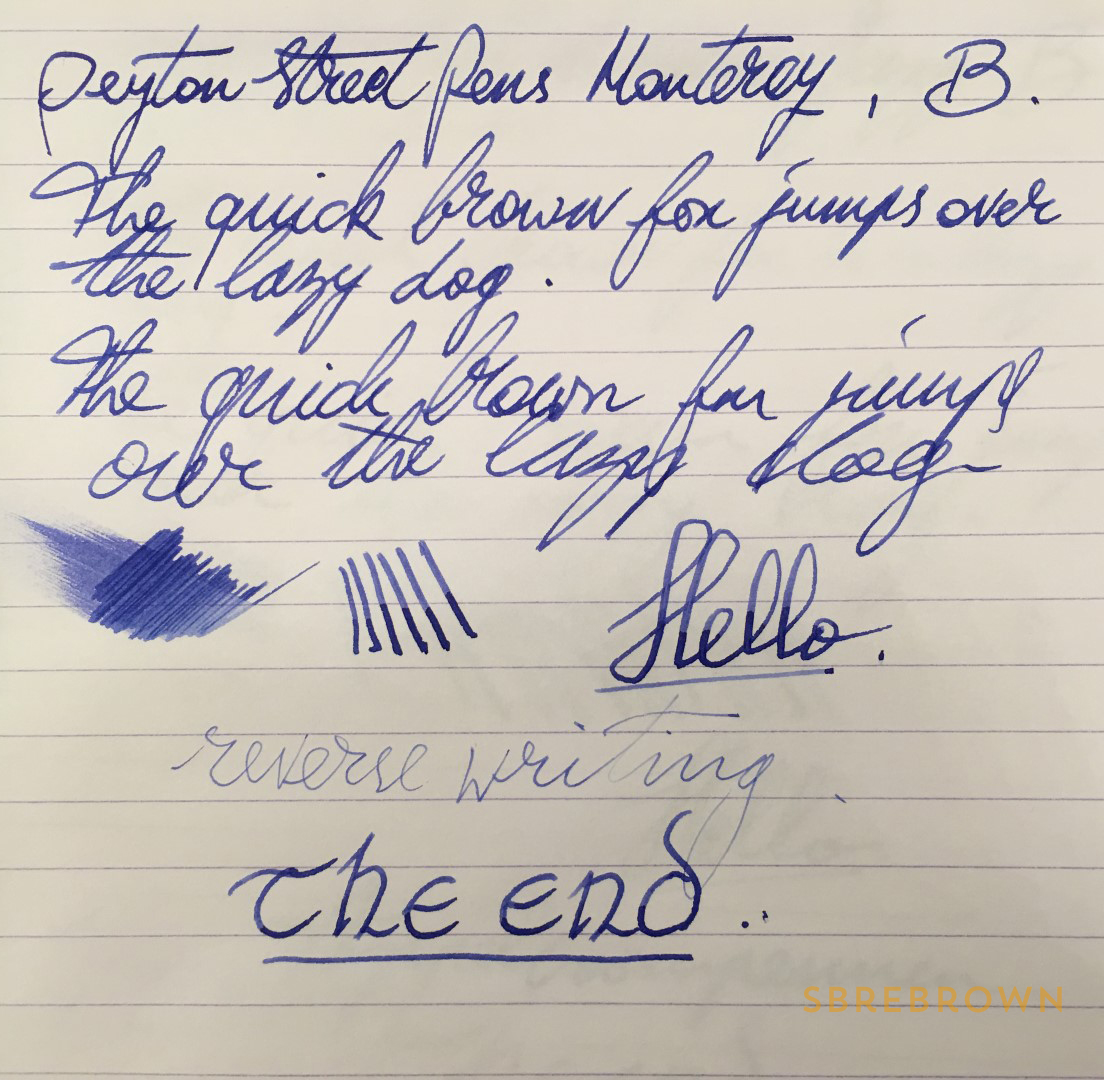 Peyton Street Pens Monterey, B.
The quick brown fox jumps over
the lazy dog.
The quick brown fox jumps
over the lazy dog
Hello.
reverse writing.
The end.
SBREBROWN